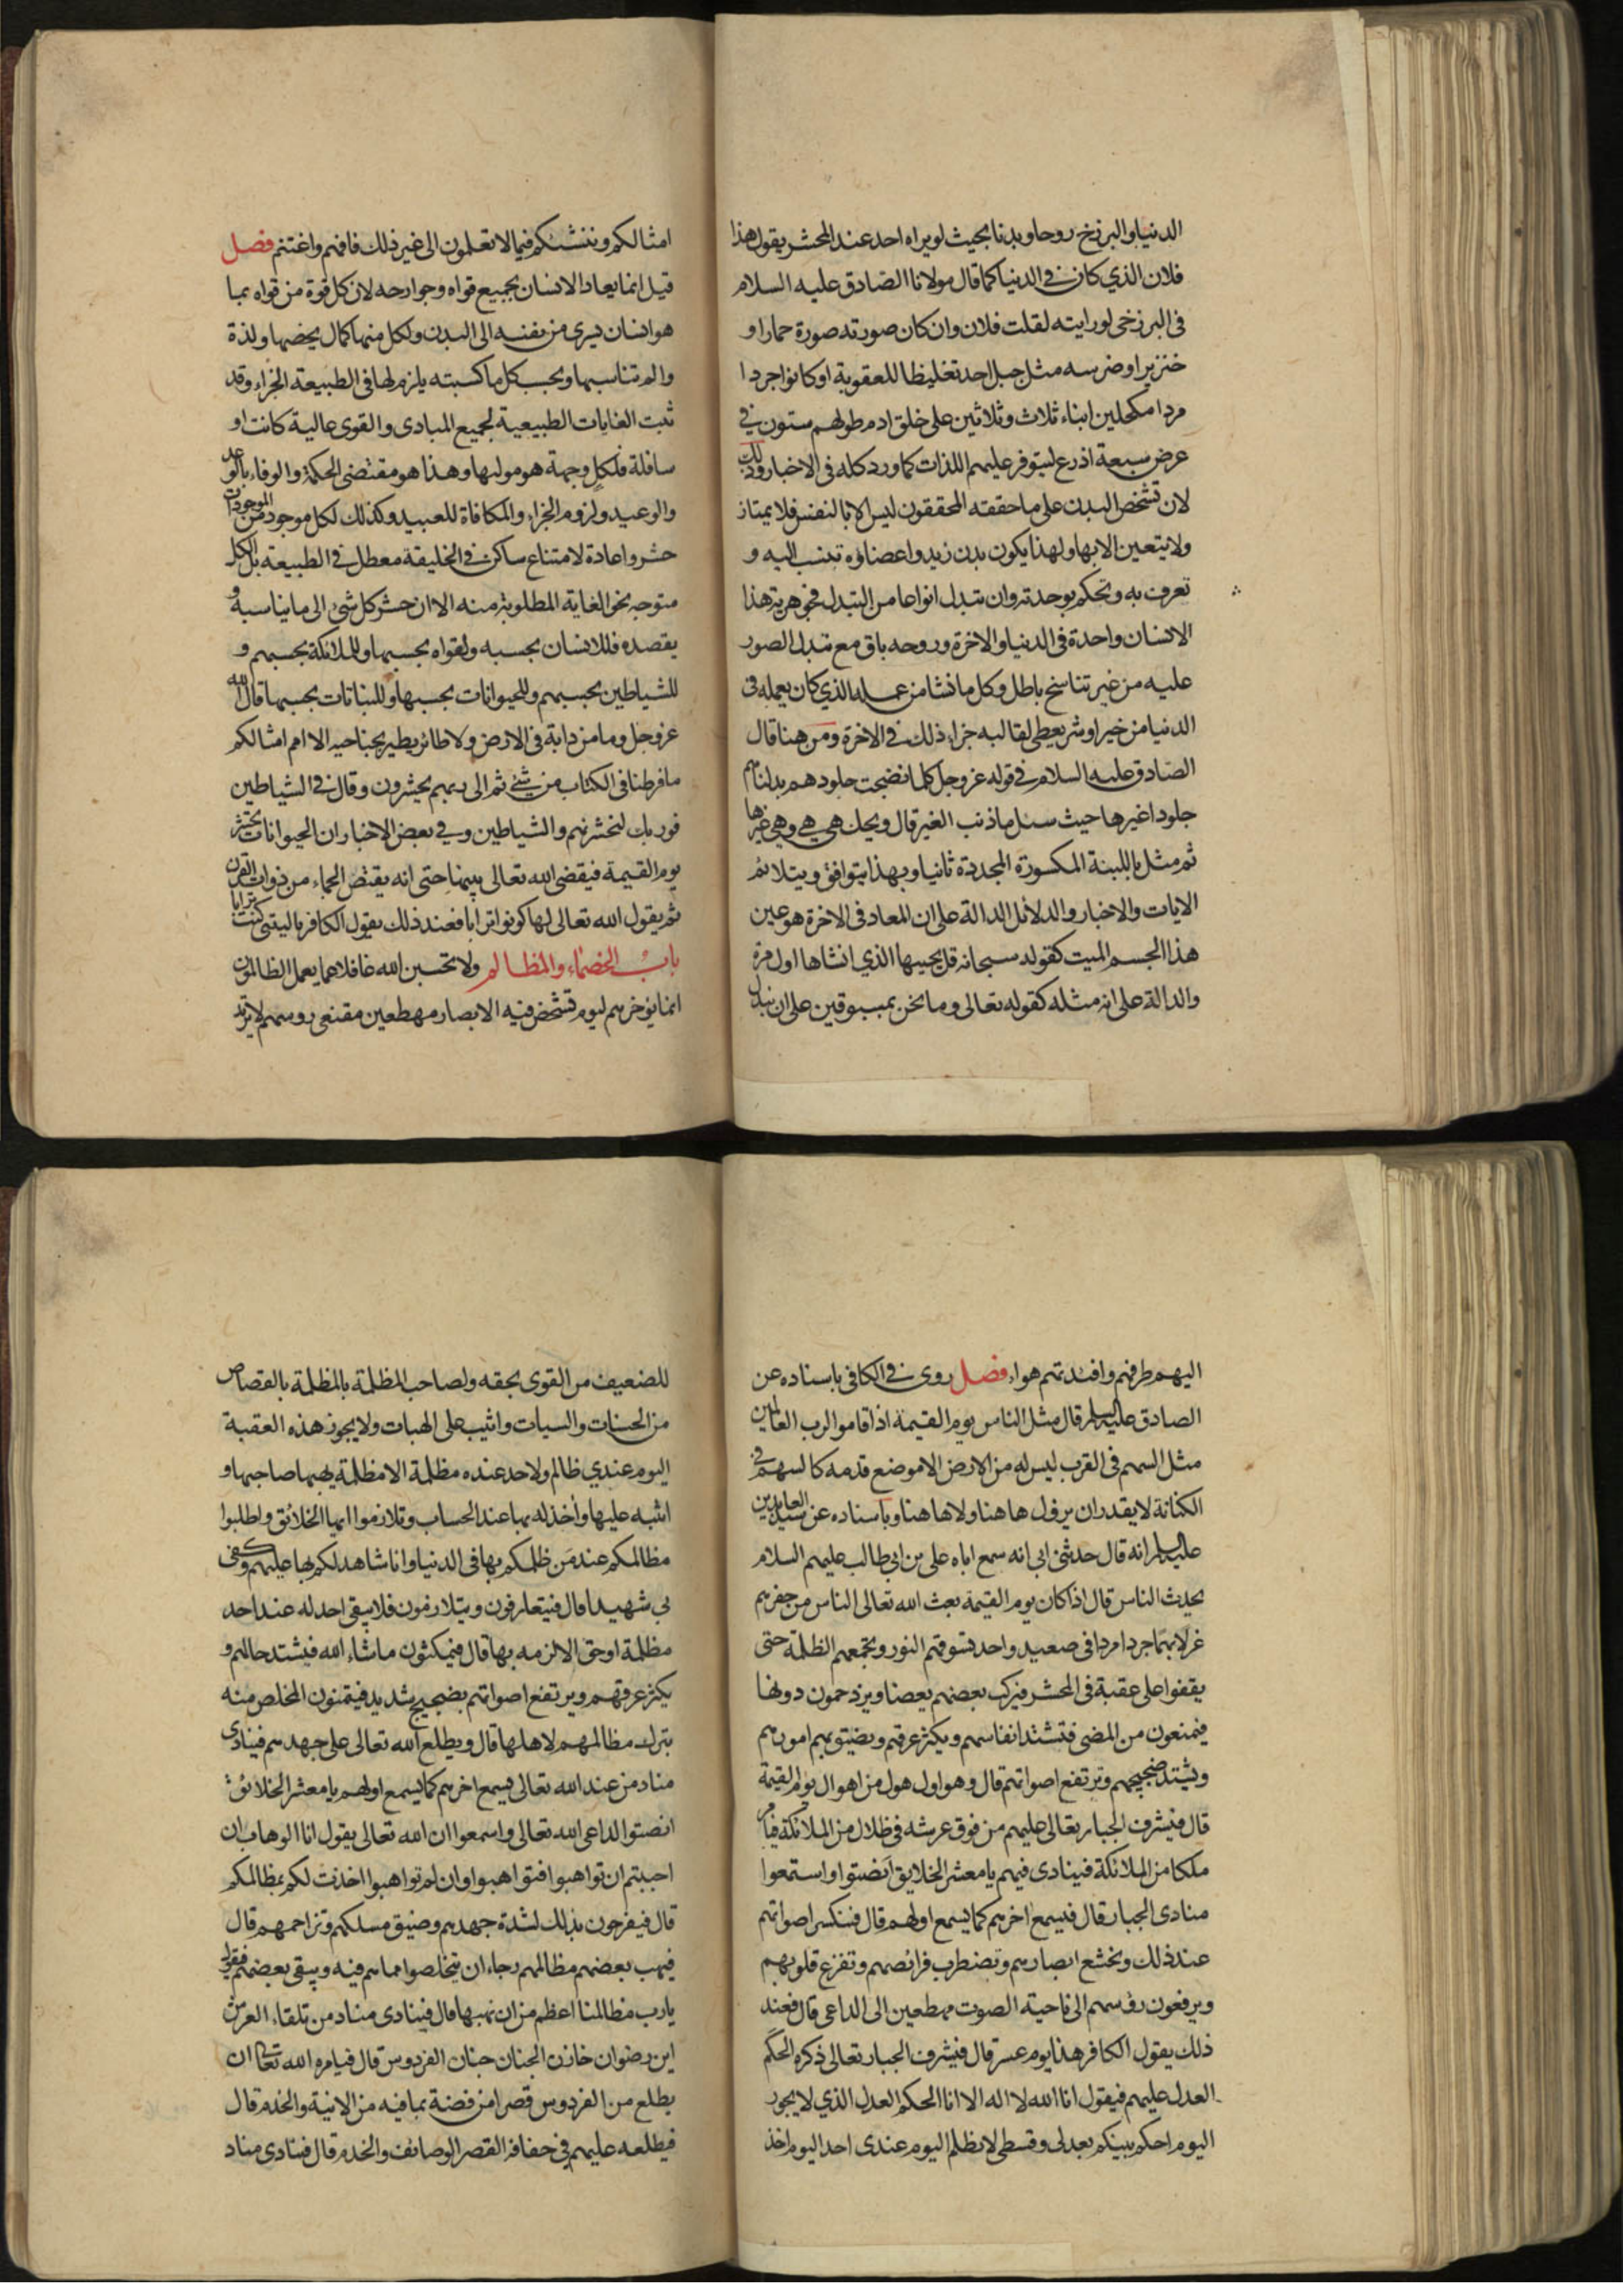 الدنيا والبرزخ روحا وبدنا بحيث لو يراه احد عند المحشر يقول هذا
فلان الذي كان في الدنيا كما قال مولانا الصادق عليه السلام
فى البرزخى لو رايته لقلت فلان وان كان صورته صورة حمار او
خنزير او ضرسه مثل جبل احد تغليظا للعقوبة او كانوا جردا
مردا مكحلين ابناء ثلاث وثلاثين على خلق ادم طولهم ستون في
عرض سبعة اذرع ليتوفر عليهم اللذات كما ورد كله فى الاخبار وذلك
لان تشخص البدن على ما حققه المحققون ليس الا بالنفس فلا يمتاز
ولا يتعين الا بها ولهذا يكون بدن زيد واعضاؤه تنسب اليه و
تعرف به وتحكم بوحدته وان تبدل انواعا من التبدل فجوهرية هذا
الانسان واحدة فى الدنيا والاخرة وروحه باق مع تبدل الصور
عليه من غير تناسخ باطل وكل ما نشا من عمله الذي كان يعمله فى
الدنيا من خير او شر يعطى لقالبه جزاء ذلك في الاخرة ومن هنا قال
الصادق عليه السلام في قوله عز وجل كلما نضجت جلودهم بدلناهم
جلودا غيرها حيث سئل ما ذنب الغير قال ويحك هي هي وهي غيرها
ثم مثل باللبنة المكسورة المجددة ثانيا وبهذا يتوافق ويتلائم
الايات والاخبار والدلائل الدالة على ان المعاد فى الاخرة هو عين
هذا الجسم الميت كقوله سبحانه قل يحييها الذي انشاها اول مرة
والدالة على انه مثله كقوله تعالى وما نحن بمسبوقين على ان نبدل
امثالكم وننشئكم فيما لا تعلمون الى غير ذلك فافهم واغتنم فصل
قيل انما يعاد الانسان بجميع قواه وجوارحه لان كل قوة من قواه بما
هو انسان يسرى من نفسه الى البدن ولكل منها كمال يخصها ولذة
والم تناسبها وبحسب كل ما كسبته يلزم لها في الطبيعة الجزاء وقد
ثبت الغايات الطبيعية لجميع المبادى والقوى عالية كانت او
سافلة فلكل وجهة هو موليها وهذا هو مقتضى الحكمة والوفاء بالوعد
والوعيد ولزوم الجزاء والمكافاة للعبيد وكذلك لكل موجود من الموجودات
حشر واعادة لامتناع ساكن في الخليقة معطل في الطبيعة بل الكل
متوجه نحو الغاية المطلوبة منه الا ان حشر كل شئ الى ما يناسبه و
يقصده فللانسان بحسبه ولقواه بحسبها وللملائكة بحسبهم و
للشياطين بحسبهم وللحيوانات بحسبها وللنباتات بحسبها قال الله
عز وجل وما من دابة في الارض ولا طائر يطير بجناحيه الا امم امثالكم
ما فرطنا فى الكتاب من شئ ثم الى ربهم يحشرون وقال في الشياطين
فوربك لنحشرنهم والشياطين وفي بعض الاخبار ان الحيوانات تحشر
يوم القيمة فيقضى الله تعالى بينها حتى انه يقتص الجماء من ذوات القرن
ثم يقول الله تعالى لها كونوا ترابا فعند ذلك يقول الكافر يا ليتنى كنت ترابا
باب الخصماء والمظالم ولا تحسبن الله غافلا عما يعمل الظالمون
انما يؤخرهم ليوم تشخص فيه الابصار مهطعين مقنعى رؤسهم لا يرتد
اليهم طرفهم وافئدتهم هواء فصل روى في الكافى باسناده عن
الصادق عليه السلم قال مثل الناس يوم القيمة اذا قاموا لرب العالمين
مثل السهم فى القرب ليس له من الارض الا موضع قدمه كالسهم فى
الكنانة لا يقدر ان يزول هاهنا ولا هاهنا وباسناده عن سيد العابدين
عليه السلم انه قال حدثنى ابى انه سمع اباه على بن ابى طالب عليهم السلام
يحدث الناس قال اذا كان يوم القيمة بعث الله تعالى الناس من حفرهم
غرلا بهما جردا مردا فى صعيد واحد تسوقهم النور وتجمعهم الظلمة حتى
يقفوا على عقبة فى المحشر فيركب بعضهم بعضا ويزدحمون دونها
فيمنعون من المضى فتشتد انفاسهم ويكثر عرقهم وتضيق بهم امورهم
ويشتد ضجيجهم وترتفع اصواتهم قال وهو اول هول من اهوال يوم القيمة
قال فيشرف الجبار تعالى عليهم من فوق عرشه في ظلال من الملائكة فيامر
ملكا من الملائكة فينادى فيهم يا معشر الخلايق انصتوا واستمعوا
منادى الجبار قال فيسمع اخرهم كما يسمع اولهم قال فتنكسر اصواتهم
عند ذلك وتخشع ابصارهم وتضطرب فرائصهم وتفزع قلوبهم
ويرفعون رؤسهم الى ناحية الصوت مهطعين الى الداعى قال فعند
ذلك يقول الكافر هذا يوم عسر قال فيشرف الجبار تعالى ذكره الحكم
العدل عليهم فيقول انا الله لا اله الا انا الحكم العدل الذي لا يجور
اليوم احكم بينكم بعدلى وقسطى لا يظلم اليوم عندى احد اليوم اخذ
للضعيف من القوى بحقه ولصاحب المظلمة بالمظلمة بالقصاص
من الحسنات والسيات واثيب على الهبات ولا يجوز هذه العقبة
اليوم عندي ظالم ولا احد عنده مظلمة الا مظلمة يهبها صاحبها و
اثيبه عليها واخذ له بها عند الحساب وتلازموا ايها الخلائق واطلبوا
مظالمكم عند من ظلمكم بها فى الدنيا وانا شاهد لكم بها عليهم وكفى
بي شهيدا قال فيتعارفون ويتلازمون فلا يبقى احد له عند احد
مظلمة او حق الا لزمه بها قال فيمكثون ما شاء الله فيشتد حالهم و
يكثر عرقهم وترتفع اصواتهم بضجيج شديد فيتمنون المخلص منه
بترك مظالمهم لاهلها قال ويطلع الله تعالى على جهدهم فينادى
مناد من عند الله تعالى يسمع اخرهم كما يسمع اولهم يا معشر الخلائق
انصتوا لداعى الله تعالى واسمعوا ان الله تعالى يقول انا الوهاب ان
احببتم ان تواهبوا فتواهبوا وان لم تواهبوا اخذت لكم بمظالمكم
قال فيفرحون بذلك لشدة جهدهم وضيق مسلكهم وتزاحمهم قال
فيهب بعضهم مظالمهم رجاء ان يتخلصوا مما هم فيه ويبقى بعضهم فيقول
يا رب مظالمنا اعظم من ان نهبها قال فينادى مناد من تلقاء العرش
اين رضوان خازن الجنان جنان الفردوس قال فيامره الله تعالى ان
يطلع من الفردوس قصرا من فضة بما فيه من الانية والخدم قال
فيطلعه عليهم في حفافة القصر الوصائف والخدم قال فينادى مناد